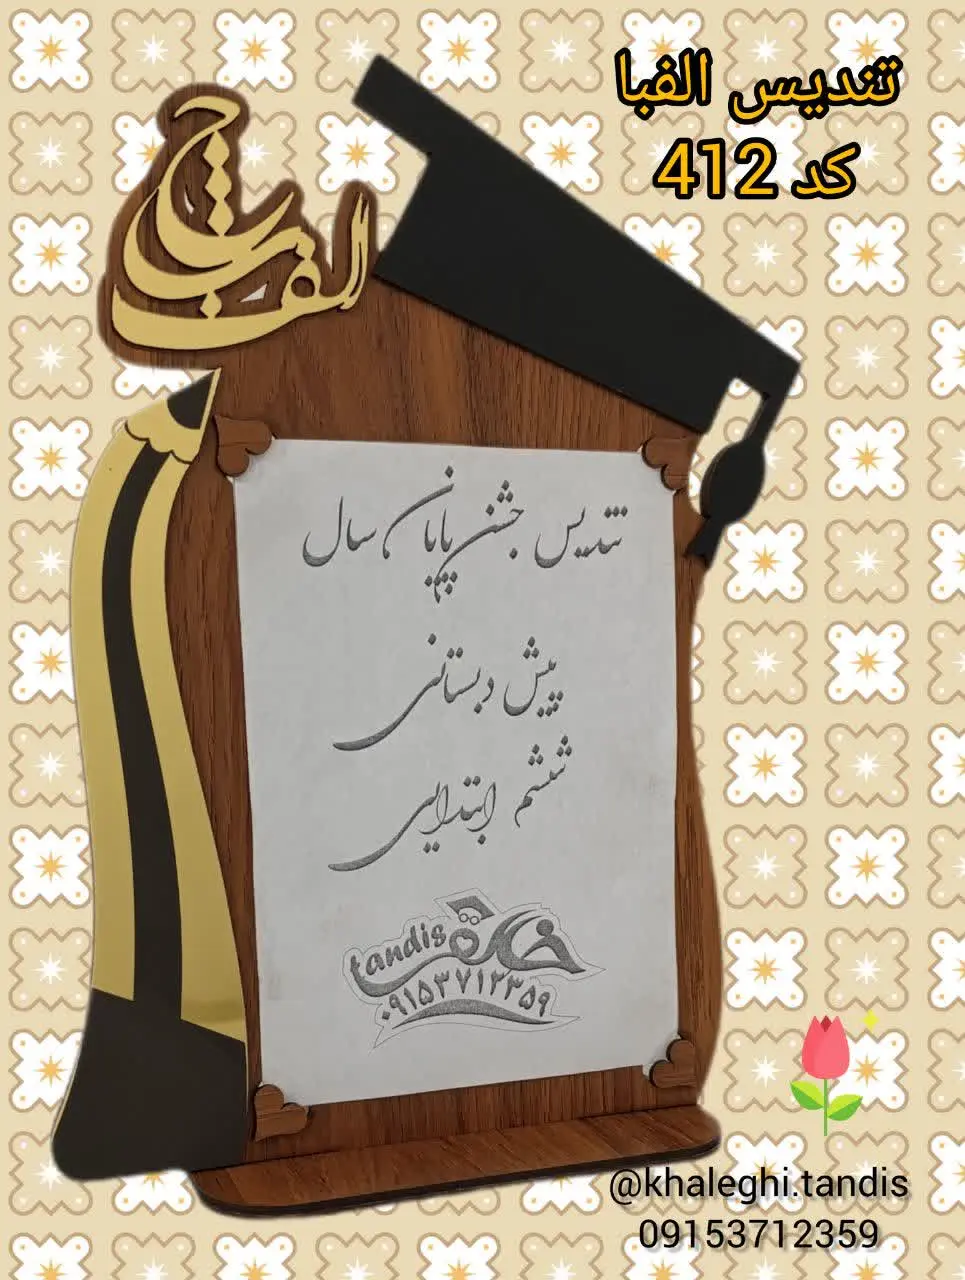 تندیس الفبا
کد 412
الفبا
تندیس جشن پایان سال
پیش دبستانی
ششم ابتدایی
خالقی
tandis
۰۹۱۵۳۷۱۲۳۵۹
@khaleghi.tandis
09153712359